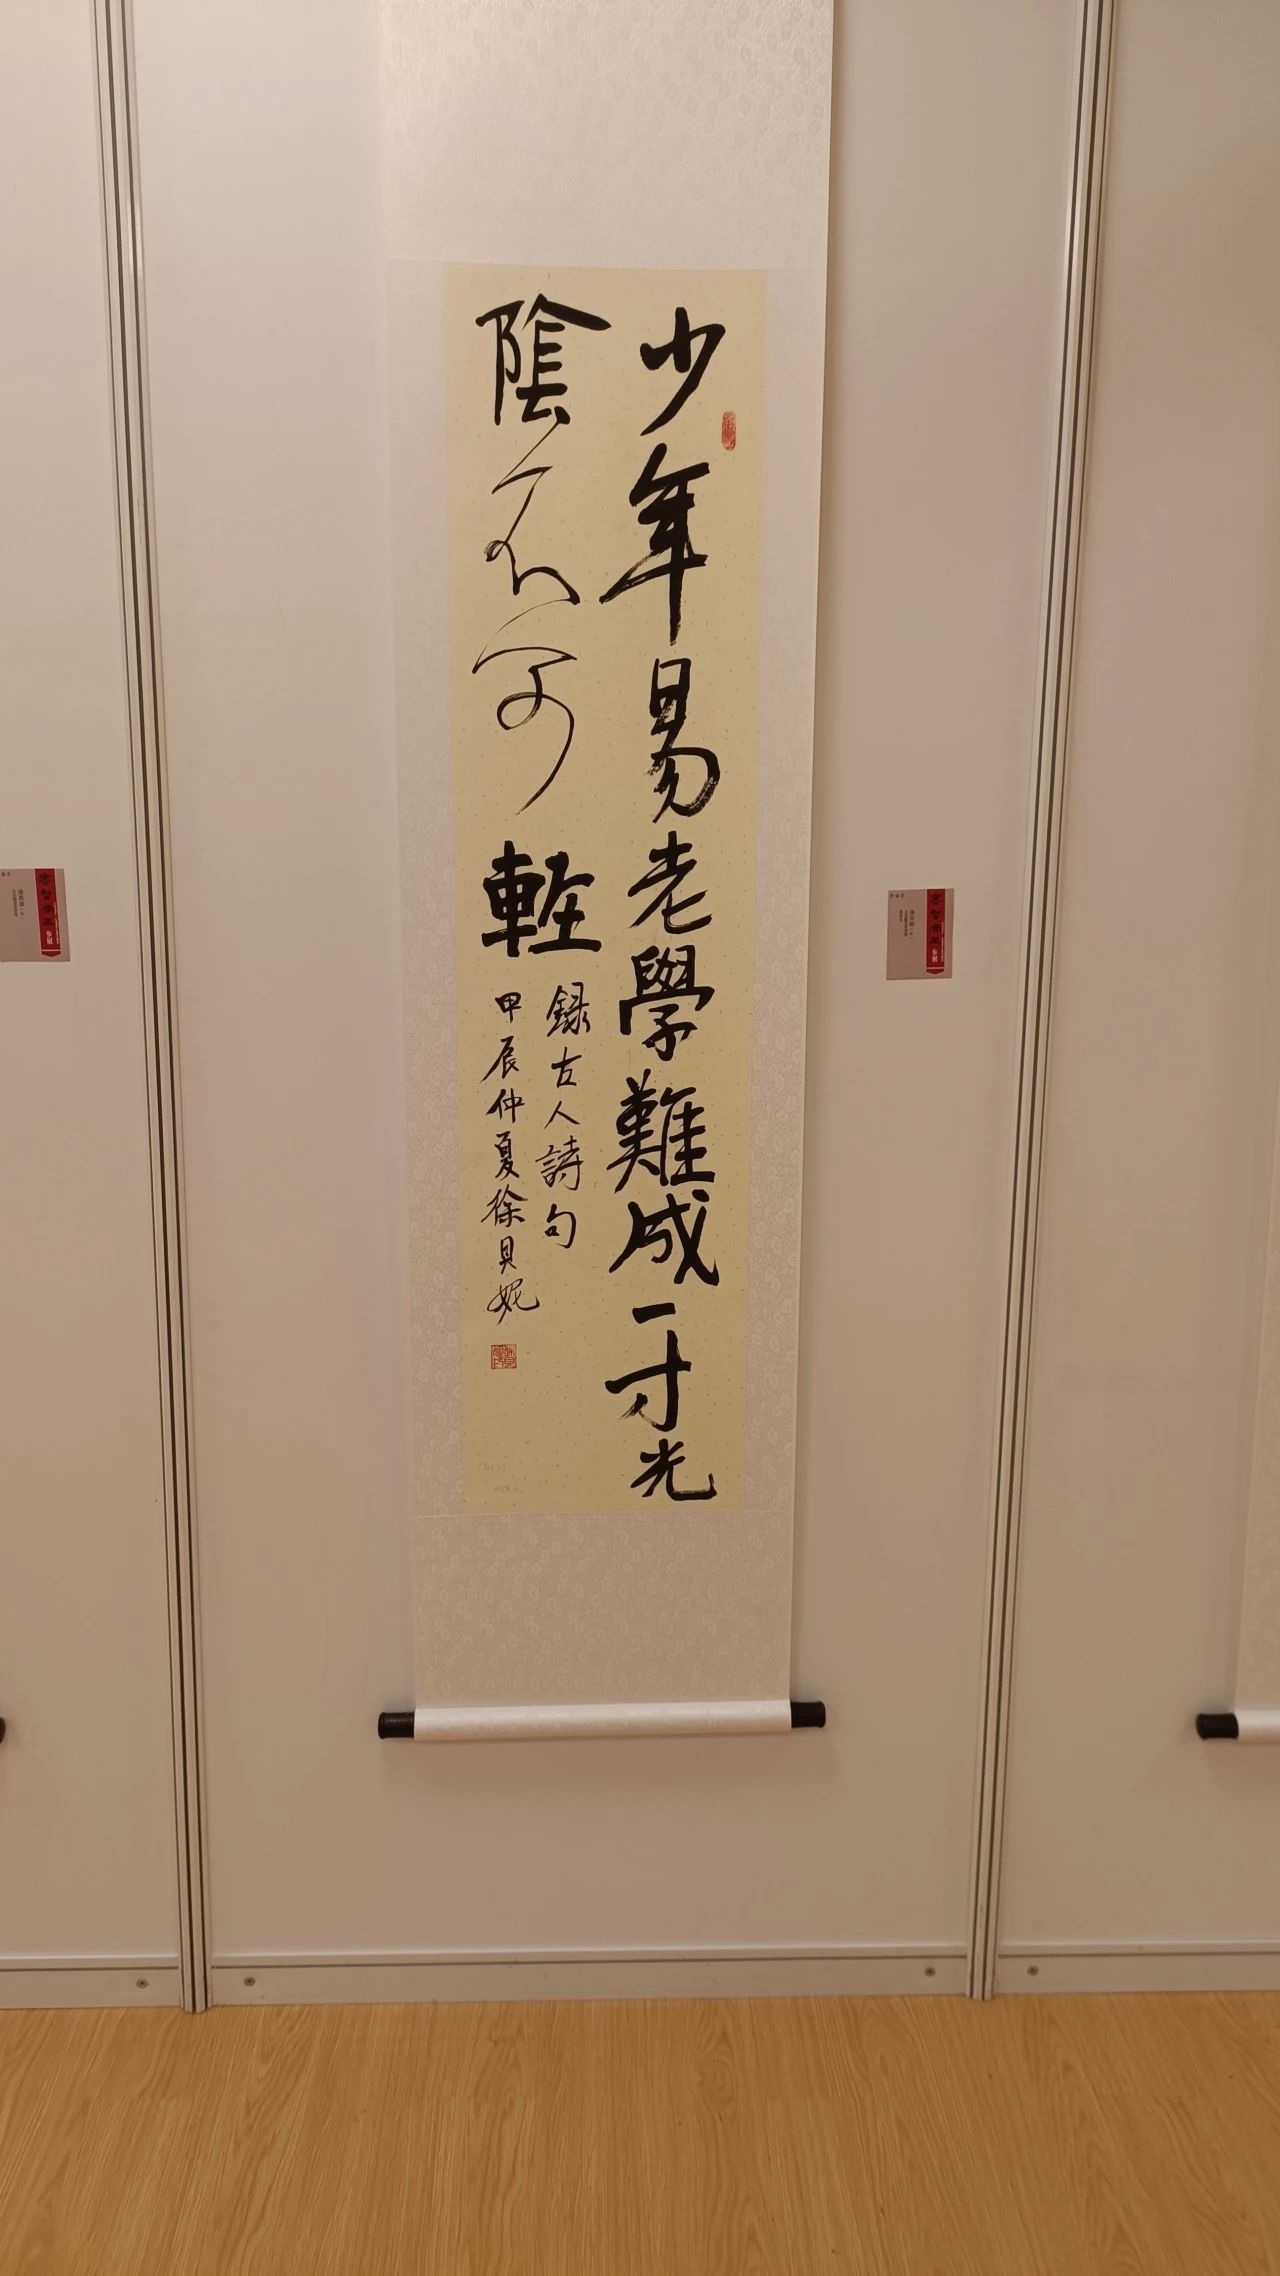 少年易老學難成一寸光
陰不可輕
録古人詩句
甲辰仲夏徐貝妮